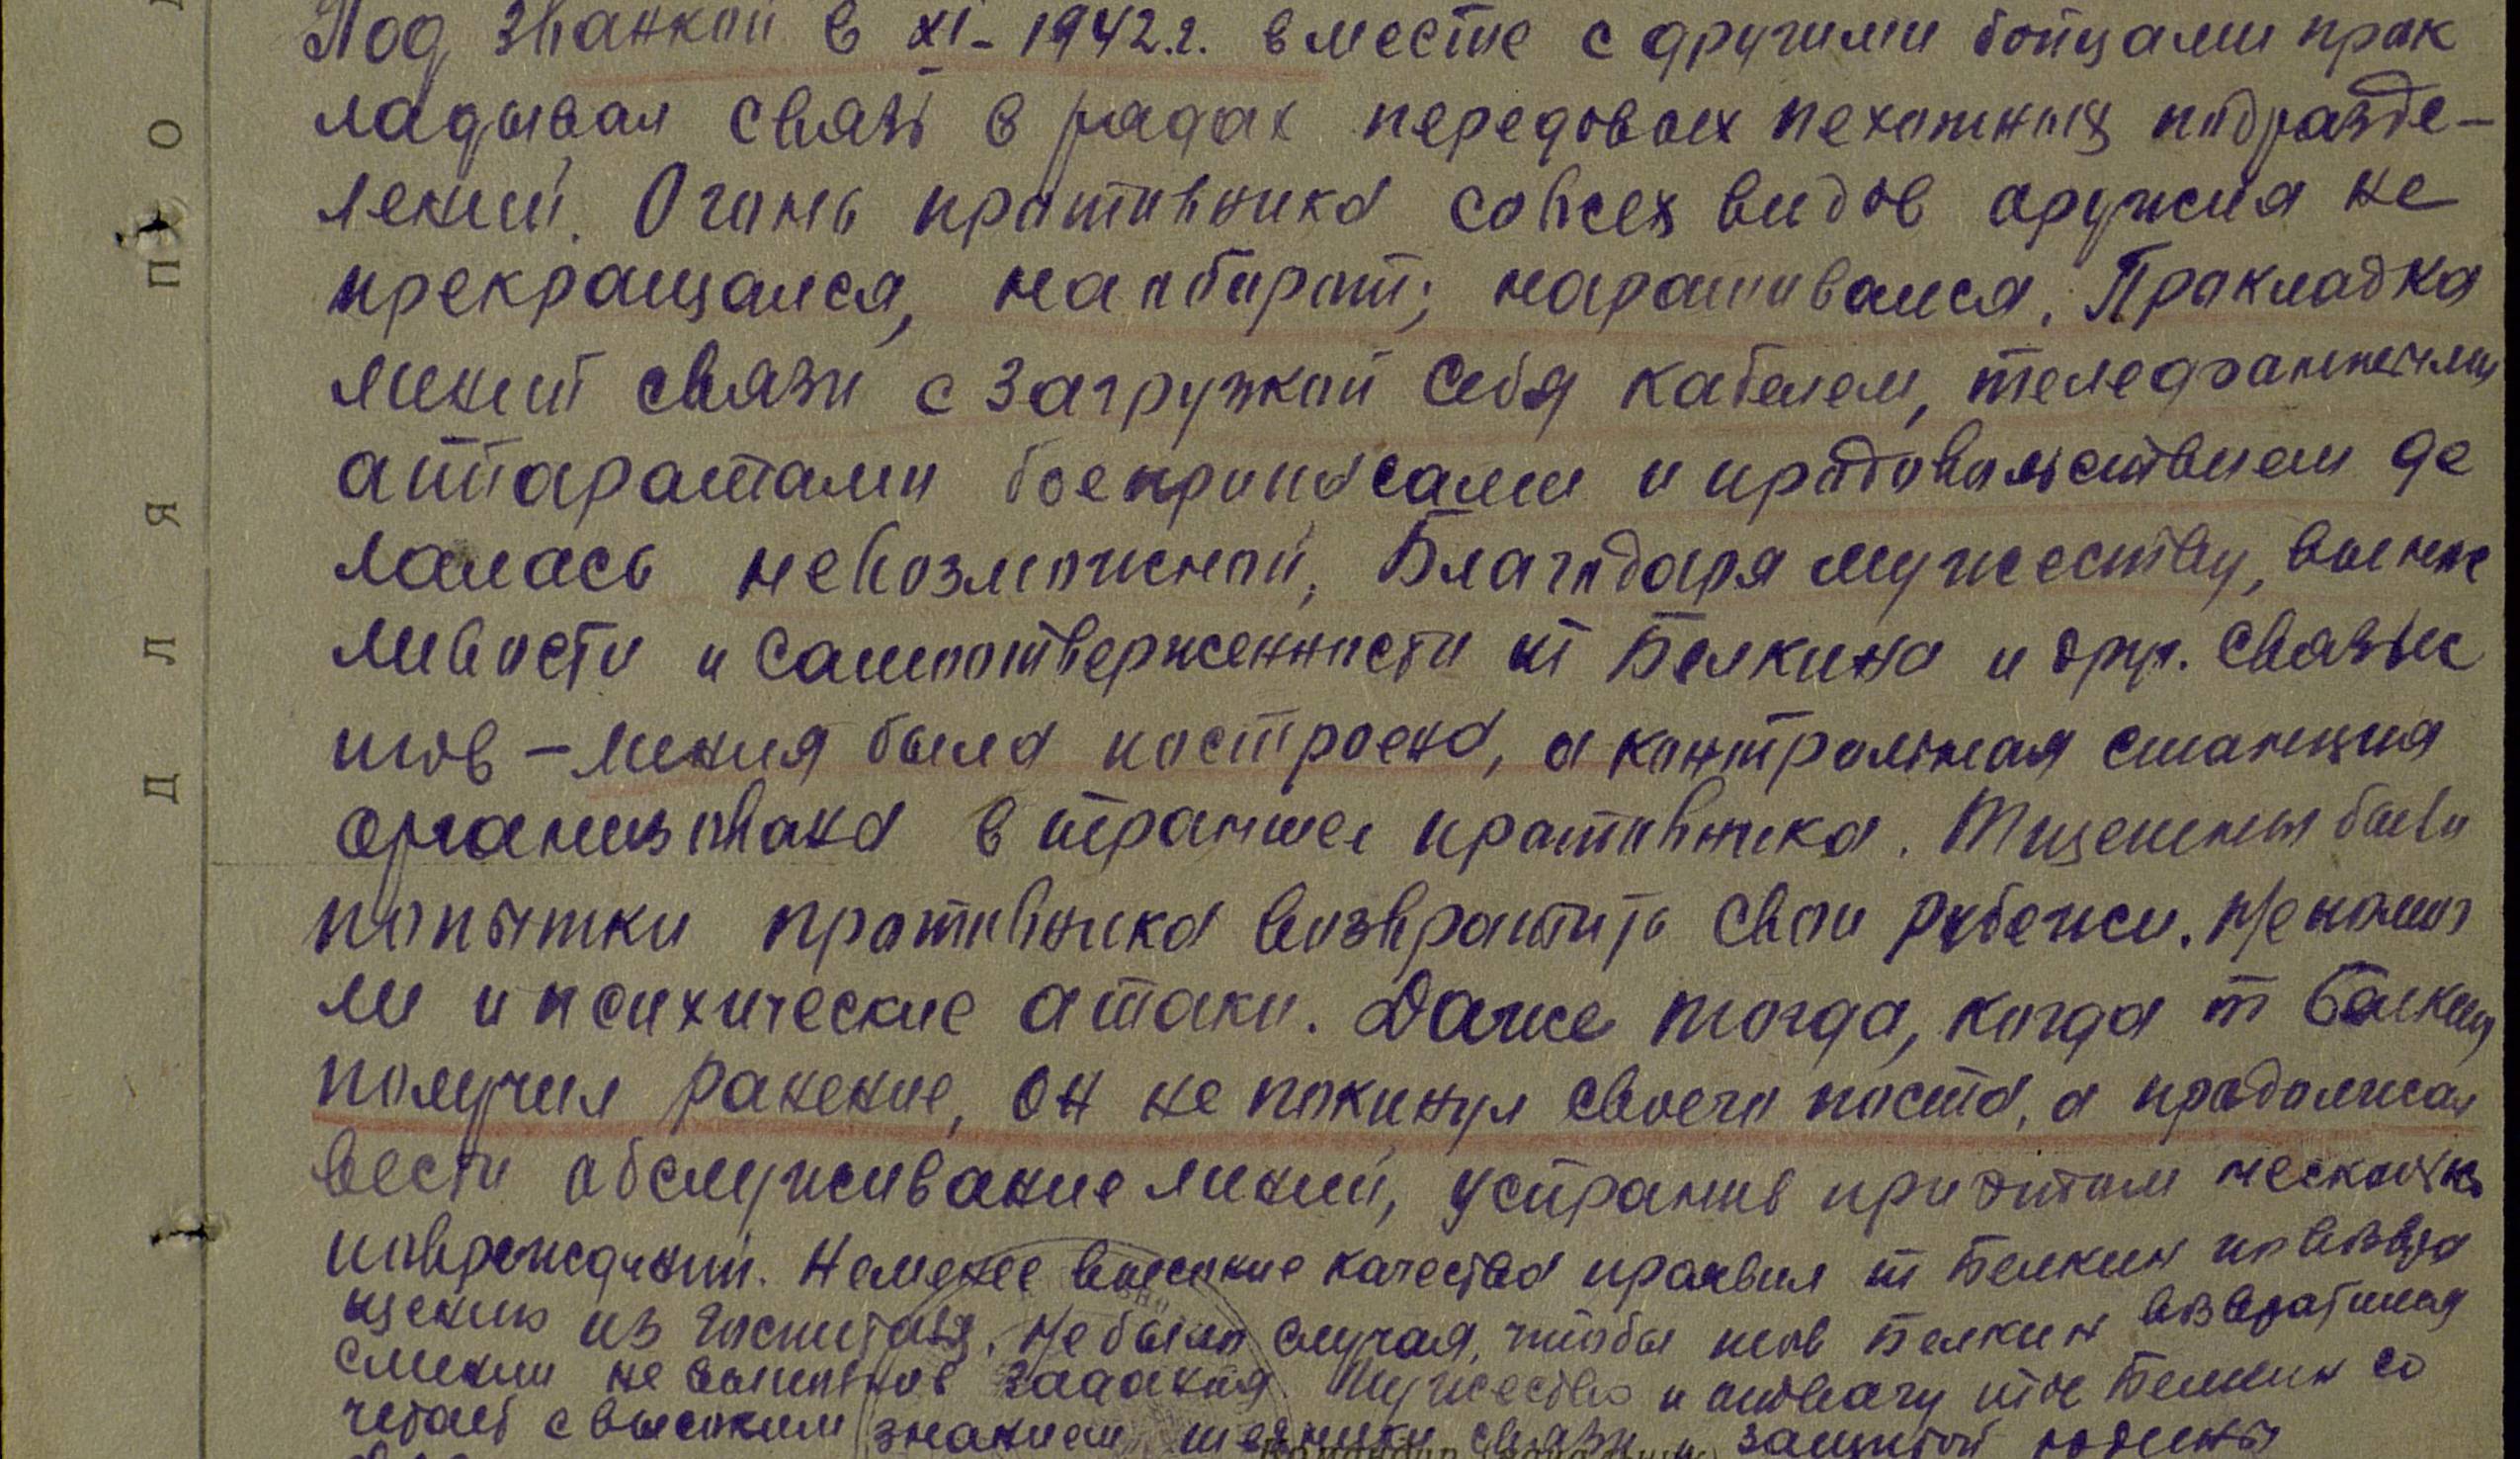 Под Званкой в XI-1942.г. вместе с другими бойцами прок
ладывал связь в рядах передовых пехотных подразде-
лений. Огонь противника со всех видов оружия не
прекращался, наоборот, нарастивался. Прокладка
линий связи с загрузкой себя кабелем, телефонными
аппаратами боеприпасами и продовольствием де
лалась невозможной, Благодаря мужеству, вынос
ливости и самоотверженности т Белкина и друг. связис
тов - линия была построена, а контрольная станция
организована в траншее противника. Тщетны были
попытки противника возвратить свои рубежи. Не помог
ли и психические атаки. Даже тогда, когда т Белкин
получил ранение, он не покинул своего поста, а продолжал
вести обслуживание линий, устранив при этом несколько
повреждений. Не менее высокие качества проявил т Белкин по возвра
щению из госпиталя. Не было случая, чтобы тов Белкин возвратился
с линии не выполнив задания. Мужество и отвагу тов Белкин со
четает с высоким знанием техники связи и защитой родины
Д Л Я П О